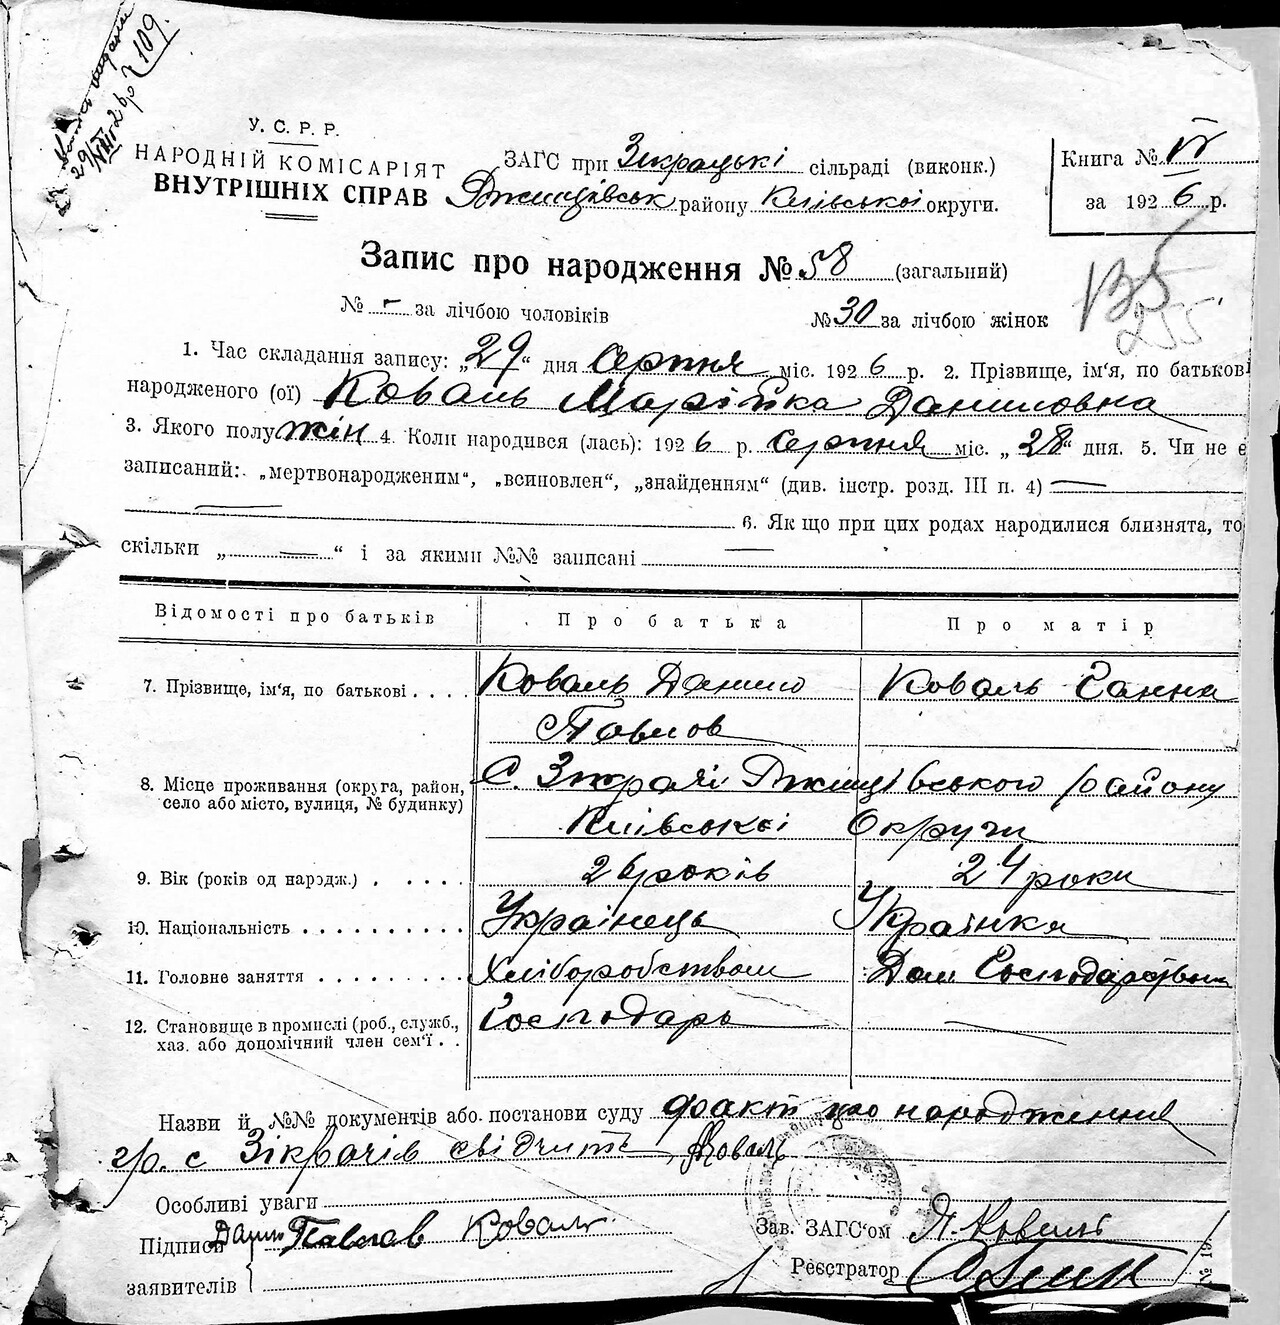 109.
У. С. Р. Р.
НАРОДНІЙ КОМІСАРІЯТ
ВНУТРІШНІХ СПРАВ
ЗАГС при Зікрацькі сільраді (виконк.)
Ржищівськ району Київської округи.
Книга № VI
за 1926 р.
Запис про народження № 58 (загальний)
№ - за лічбою чоловіків № 30 за лічбою жінок
135
255
1. Час складання запису: „29“ дня Серпня міс. 1926 р. 2. Прізвище, ім'я, по батькові
народженого (ої) Коваль Марійка Даниловна
3. Якого полу жін 4. Коли народився (лась): 1926 р. Серпня міс. „28“ дня. 5. Чи не є
записаний: „мертвонародженим“, „всиновлен“, „знайденням“ (див. інстр. розд. III п. 4) —
— 6. Як що при цих родах народилися близнята, то
скільки „—“ і за якими №№ записані —
Відомості про батьків Про батька Про матір
7. Прізвище, ім'я, по батькові . . . . Коваль Данило Коваль Ганна
Павлов
8. Місце проживання (округа, район, С. Зікрачі Ржищівського району
село або місто, вулиця, № будинку)
Київської Округи
9. Вік (років од народж.) . . . . . 26 років 24 роки
10. Національність . . . . . . . . . . Українець Українка
11. Головне заняття . . . . . . . . . Хліборобством Дом Господарством
12. Становище в промислі (роб., служб., Господарь —
хаз. або допомічний член сем'ї . .
Назви й №№ документів або постанови суду факт про народження
гр. с Зікрачів свідчить Коваль
Особливі уваги
Підписи Данило Павлов Коваль
заявителів
Зав. ЗАГС'ом Я. Коваль
Реєстратор